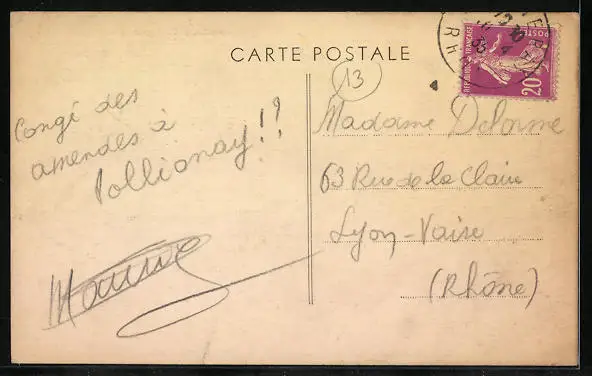 CARTE POSTALE
13
REPUBLIQUE FRANÇAISE
POSTES
20c
RH
Congé des
amendes à
Pollionay!!?
Madame Delorme
63 Rue de la Claire
Lyon-Vaise
(Rhône)